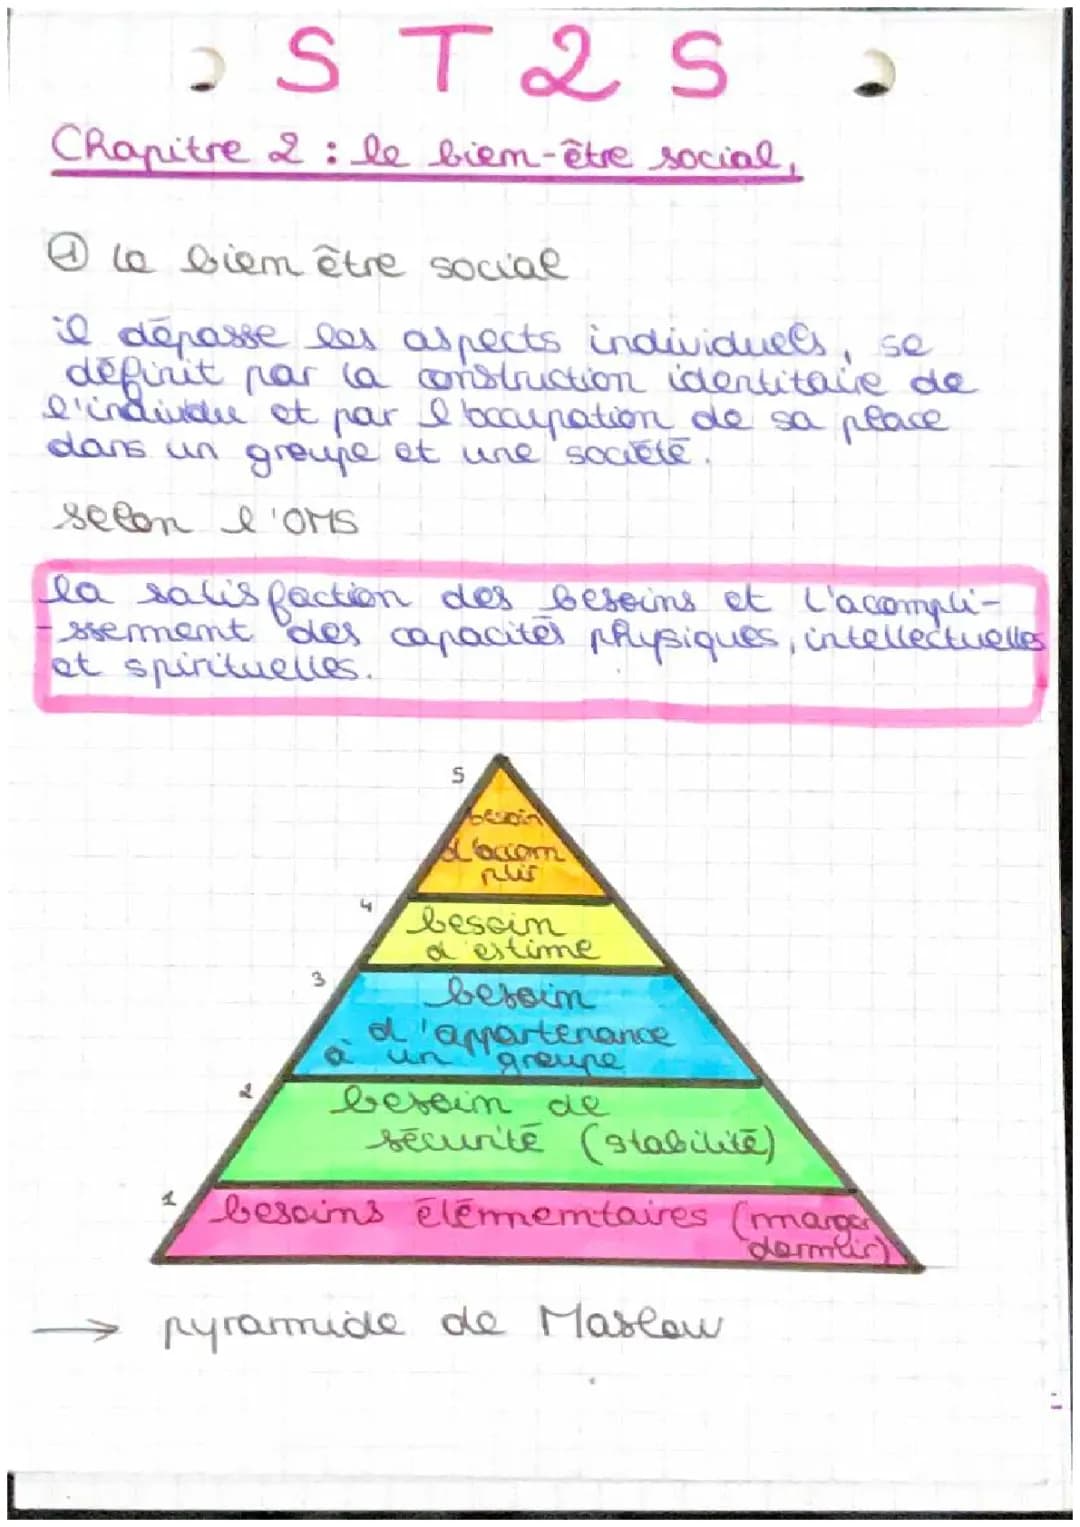 ST2S
Chapitre 2 : le bien-être social,
① le bien être social
il dépasse les aspects individuels, se
définit par la construction identitaire de
l'individu et par l'occupation de sa place
dans un groupe et une société.
selon l'OMS
la satisfaction des besoins et l'acompli-
-ssement des capacités physiques, intellectuelles
et spirituelles.
5
besoin
d'accom
plir
4
besoin
d'estime
3
besoin
d'appartenance
à un groupe
2
besoin de
sécurité (stabilité)
1
besoins élémmentaires (manger
dormir)
→ pyramide de Maslow